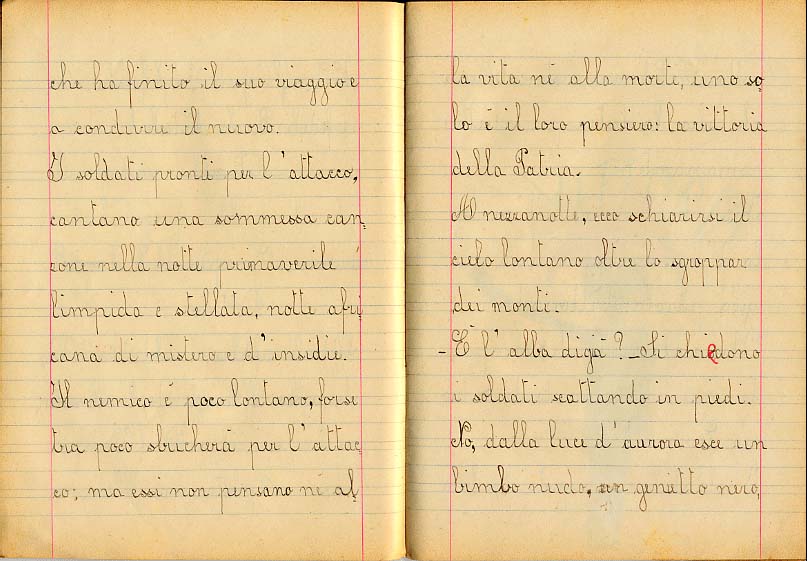 che ha finito il suo viaggio e
a condurre il nuovo.
I soldati pronti per l'attacco,
cantano una sommessa can-
zone nella notte primaverile
limpida e stellata, notte afri-
cana di mistero e d'insidie.
Il nemico è poco lontano, forse
tra poco sbucherà per l'attac-
co; ma essi non pensano nè al-
la vita nè alla morte, uno so-
lo è il loro pensiero: la vittoria
della Patria.
A mezzanotte, ecco schiarirsi il
cielo lontano oltre lo sgroppar
dei monti.
- È l'alba digà? - Si chiedono
i soldati scattando in piedi.
No, dalla luce d'aurora esce un
bimbo nudo, un genietto nero,